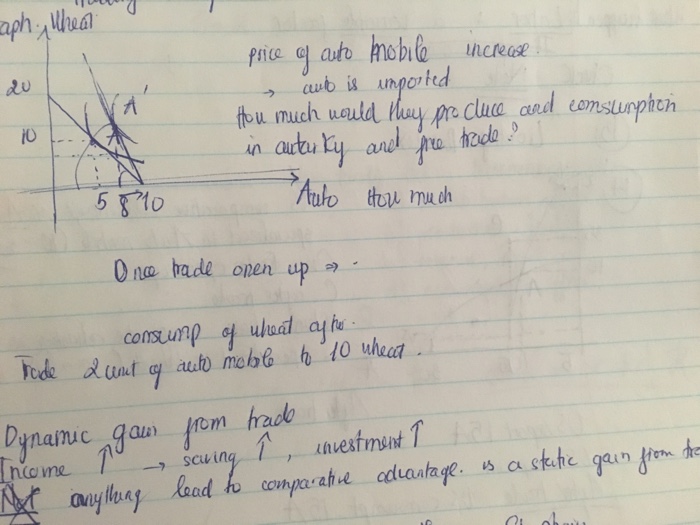 aph. Wheat
price of auto mobile increase.
20
A'
→ auto is imported
How much would they produce and comsumption
10
in autarky and free trade?
5 8 10
Auto How much
Once trade open up ⇒ -
consump of wheat after.
Trade 2 unit of auto mobile to 10 wheat.
Dynamic gain from trade
Income ↑ → saving ↑, investment ↑
Not anything lead to comparative advantage. is a static gain from tra